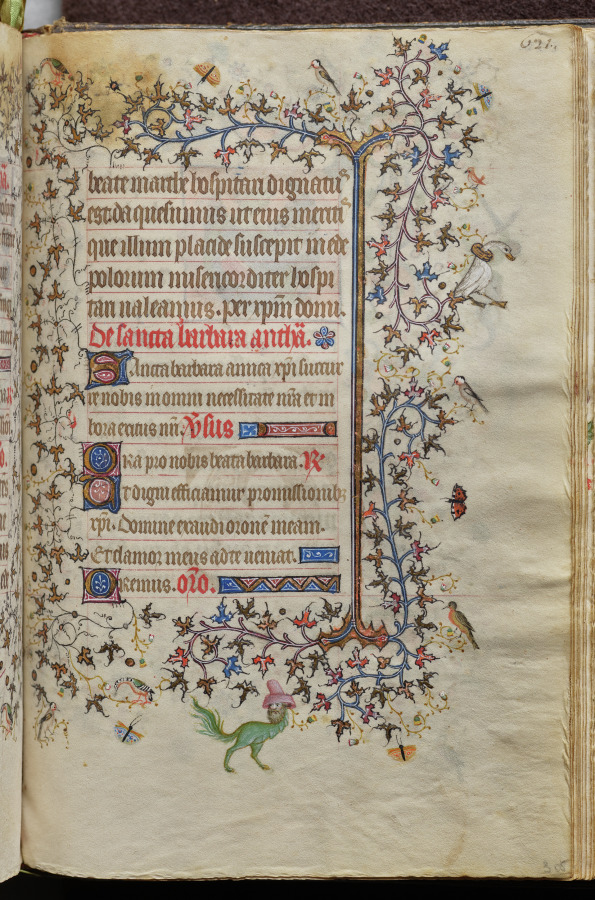 621.
beate marthe hospitari dignatus
est. da quesumus ut eius meritis
que illum placide suscepit in ede
polorum misericorditer hospi
tari ualeamus. per xpm dom.
De sancta barbara anthã.
Sancta barbara amica xpi succur
re nobis in omni necessitate nrã et in
hora exitus nri Vsus
Ora pro nobis beata barbara. R
Ut digni efficiamur promissionibz
xpi. Domine exaudi oronẽ meam.
Et clamor meus ad te ueniat.
Oremus. oro.